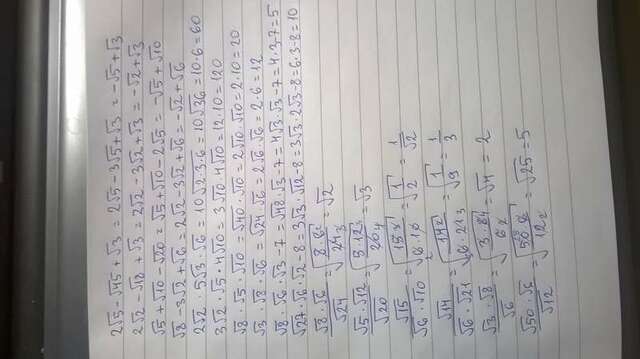 2√5 - √45 + √3 = 2√5 - 3√5 + √3 = -√5 + √3
2√2 - √18 + √3 = 2√2 - 3√2 + √3 = -√2 + √3
√5 + √10 - √20 = √5 + √10 - 2√5 = -√5 + √10
√8 - 3√2 + √6 = 2√2 - 3√2 + √6 = -√2 + √6
2√2 · 5√3 · √6 = 10√2·3·6 = 10√36 = 10·6 = 60
3√2 · √5 · 4√10 = 3√10 · 4√10 = 12·10 = 120
√8 · √5 · √10 = √40 · √10 = 2√10 · √10 = 2·10 = 20
√3 · √8 · √6 = √24 · √6 = 2√6 · √6 = 2·6 = 12
√8 · √6 · √3 - 7 = √48 · √3 - 7 = 4√3 · √3 - 7 = 4·3·7 = 5
√27 · √6 · √2 - 8 = 3√3 · √12 - 8 = 3√3 · 2√3 - 8 = 6·3 - 8 = 10
√8 · √6 / √24 = = √2
√5 · √12 / √20 = √5·12 3 / 20 4 = √3
√15 / √6 · √10 = = √1/2 = 1/√2
√14 / √6 · √21 = √14 2 / 6·21 3 = √1/9 = 1/3
√3 · √8 / √6 = √3·8 4 / 6 2 = √4 = 2
√50 · √6 / √12 = = √25 = 5